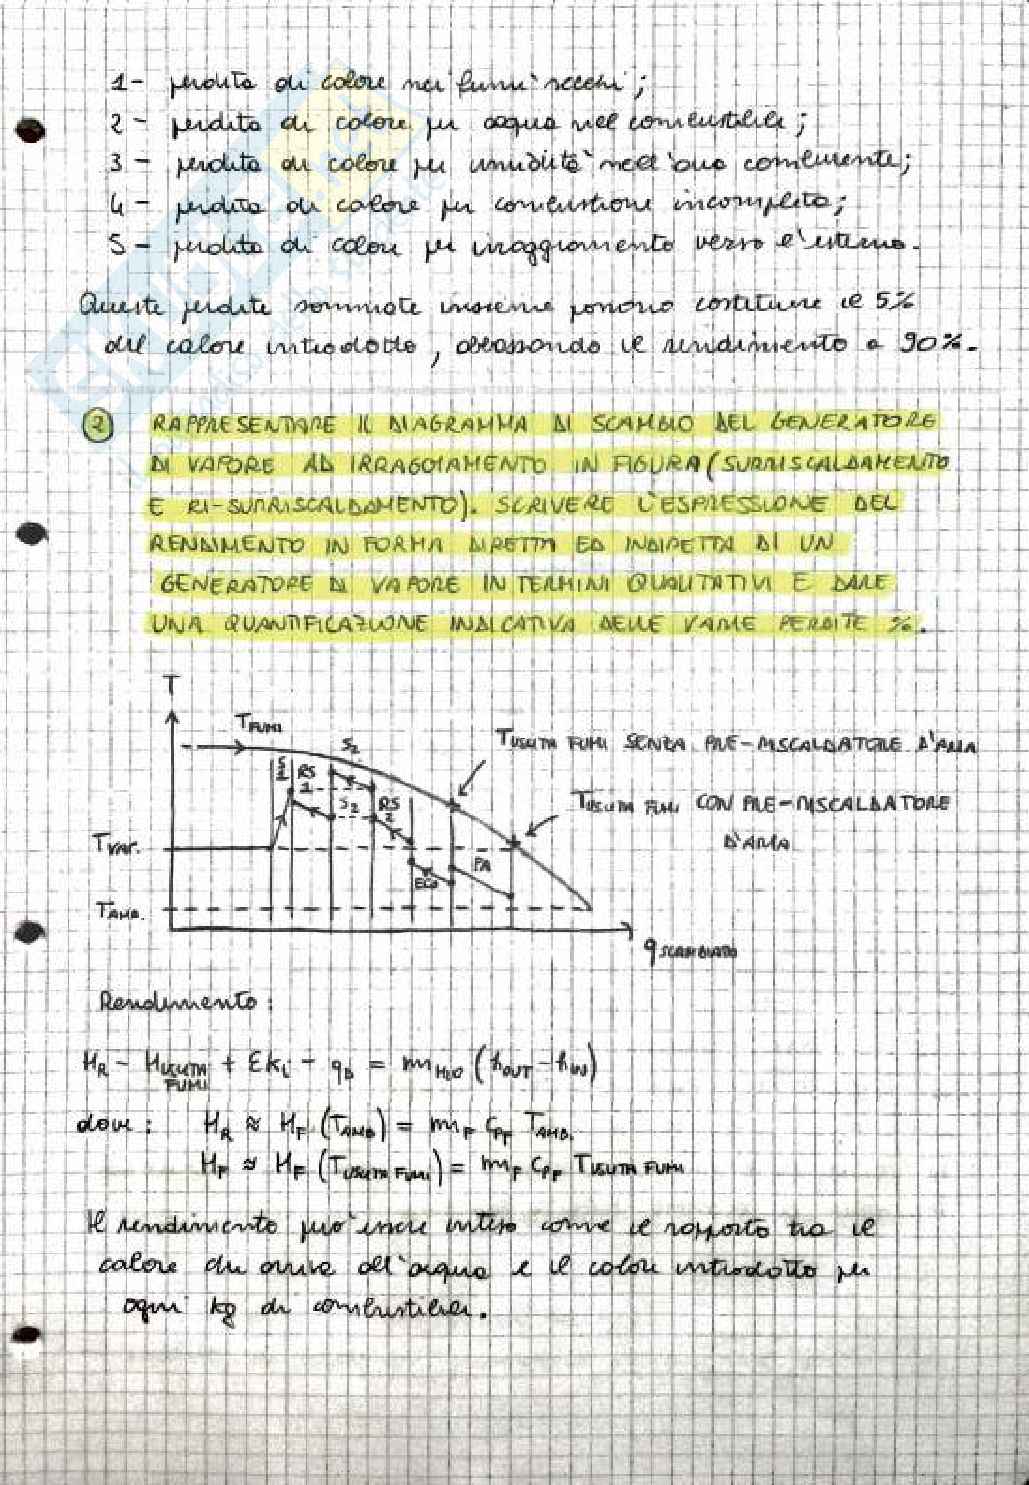 1- perdita di calore nei fumi secchi;
2- perdita di calore per acqua nel combustibile;
3- perdita di calore per umidità nell'aria comburente;
4- perdita di calore per combustione incompleta;
5- perdita di calore per irraggiamento verso l'esterno.
Queste perdite sommate insieme possono costituire il 5%
del calore introdotto, abbassando il rendimento a 90%.
2 RAPPRESENTARE IL DIAGRAMMA DI SCAMBIO DEL GENERATORE
DI VAPORE AD IRRAGGIAMENTO IN FIGURA (SURRISCALDAMENTO
E RI-SURRISCALDAMENTO). SCRIVERE L'ESPRESSIONE DEL
RENDIMENTO IN FORMA DIRETTA ED INDIRETTA DI UN
GENERATORE DI VAPORE IN TERMINI QUALITATIVI E DARE
UNA QUANTIFICAZIONE INDICATIVA DELLE VARIE PERDITE %.
T
T FUMI
S2
T USCITA FUMI SENZA PRE-RISCALDATORE D'ARIA
S1 RS1 S2 RS2
T USCITA FUMI CON PRE-RISCALDATORE
D'ARIA
T VAP.
ECO PA
T AMB.
q SCAMBIATO
Rendimento:
H_R - H_USCITA FUMI + Σk_i - q_D = m_H2O (h_OUT - h_IN)
dove: H_R ≈ H_F (T_AMB) = m_F c_PF T_AMB.
H_F ≈ H_F (T_USCITA FUMI) = m_F c_PF T_USCITA FUMI
Il rendimento può essere inteso come il rapporto tra il
calore che arriva all'acqua e il calore introdotto per
ogni kg di combustibile.